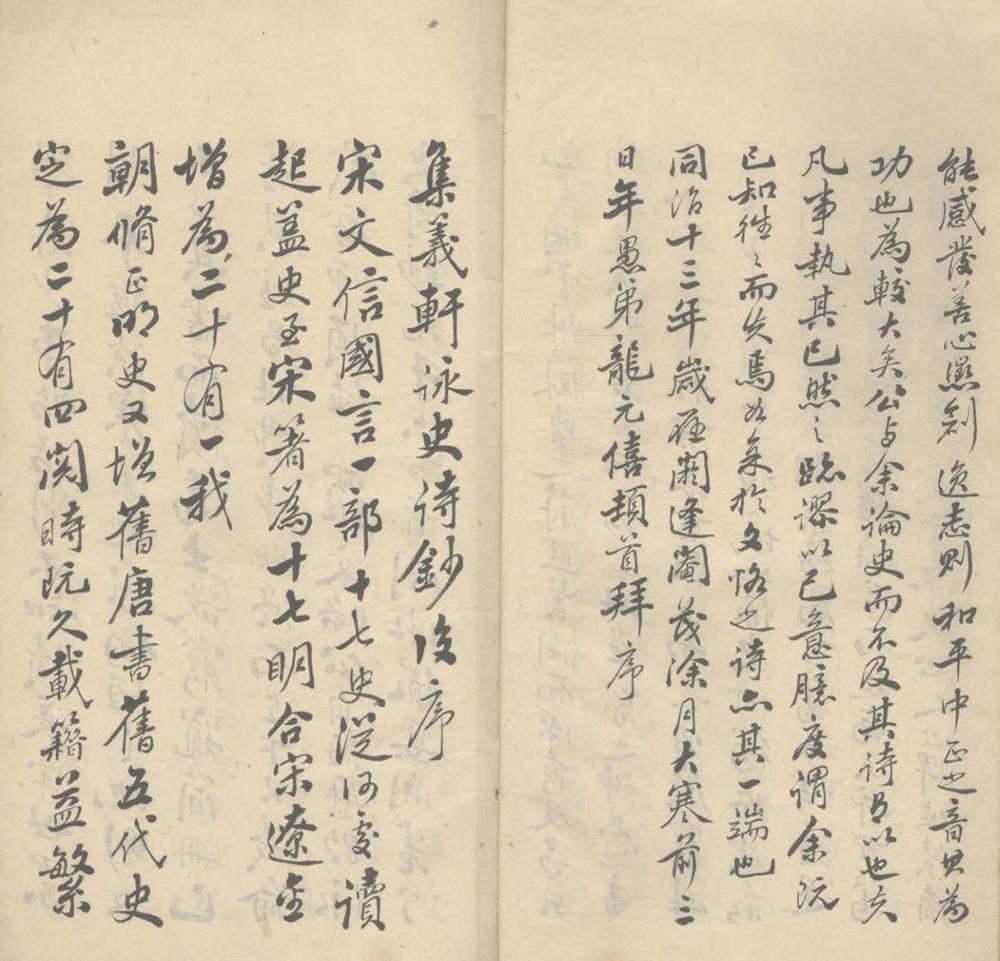 能感發善心懲創逸志則和平中正之音其為
功也為較大矣公与余論史而不及其詩有以也夫
凡事執其已然之跡謬以己意臆度謂余既
已知往〻而失焉者矣於文恪之詩亦其一端也
同治十三年歲在閼逢閹茂涂月大寒前三
日年愚弟龍元僖頓首拜序
集義軒詠史诗鈔後序
宋文信國言一部十七史從何處讀
起蓋史至宋著為十七明合宋遼金
增為二十有一我
朝脩正明史又增舊唐書舊五代史
定為二十有四閱時既久載籍益繁